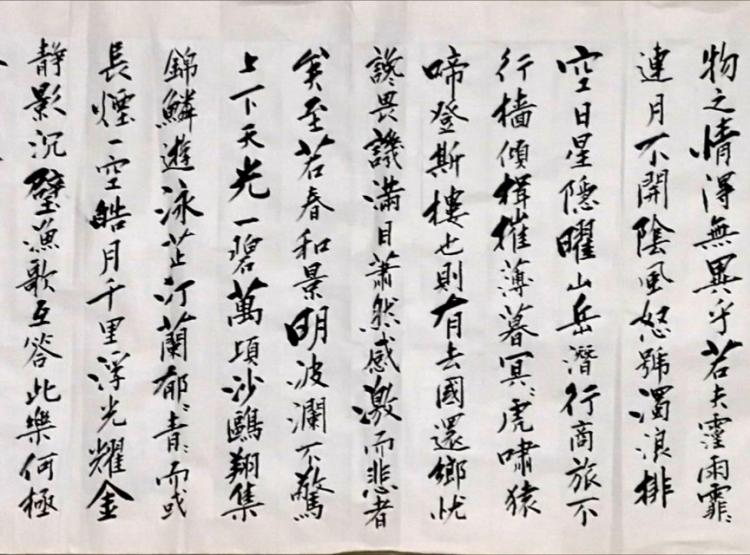 物之情得無異乎若夫霪雨霏〻
連月不開陰風怒號濁浪排
空日星隱曜山岳潛行商旅不
行檣傾楫摧薄暮冥〻虎嘯猿
啼登斯樓也則有去國還鄉忧
說畏譏滿目蕭然感激而悲者
矣至若春和景明波瀾不驚
上下天光一碧萬頃沙鷗翔集
錦鱗遊泳芷汀蘭郁〻青〻而或
長煙一空皓月千里浮光耀金
靜影沉璧漁歌互答此樂何極